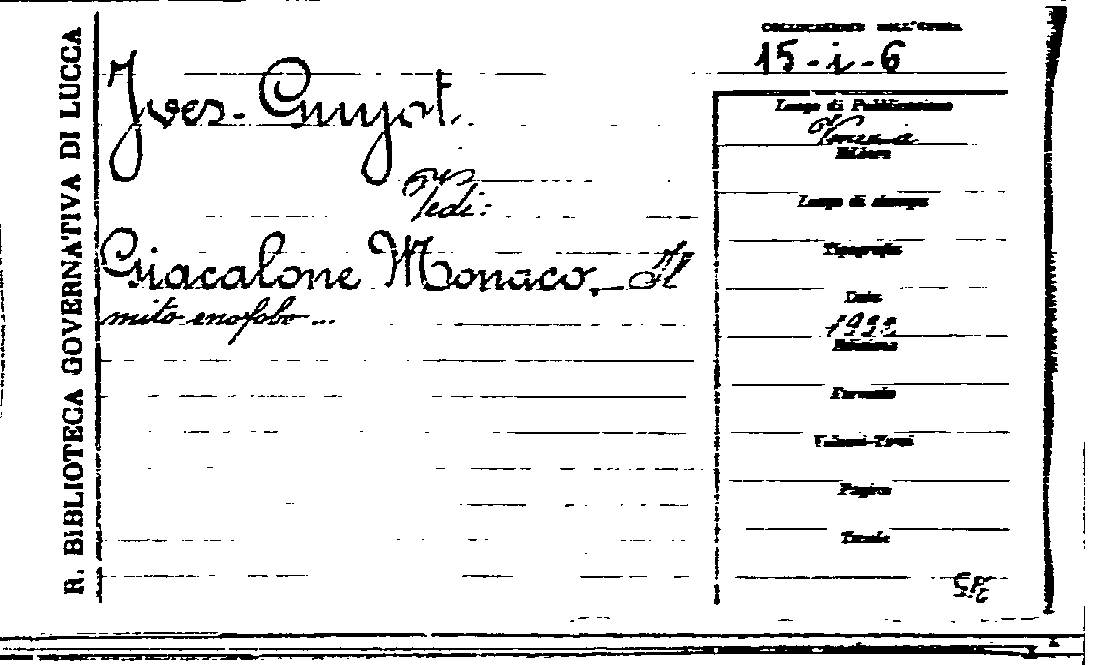 R. BIBLIOTECA GOVERNATIVA DI LUCCA
COLLOCAZIONE DELL'OPERA
15-i-6
Yves-Guyot.
Vedi:
Giacalone Monaco, Il
mito enofobo...
Luogo di Pubblicazione
Venezia
Editore
Luogo di stampa
Tipografia
Data
Edizione
Formato
Volumi-Tomi
Pagine
Tavole